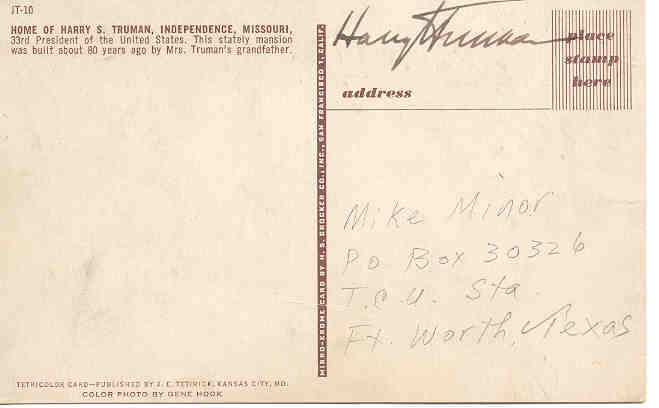 JT-10
HOME OF HARRY S. TRUMAN, INDEPENDENCE, MISSOURI,
33rd President of the United States. This stately mansion
was built about 80 years ago by Mrs. Truman's grandfather.
MIRRO-KROME CARD BY H. S. CROCKER CO., INC., SAN FRANCISCO 1, CALIF.
Harry S Truman
place
stamp
here
address
Mike Minor
PO Box 30326
T.C.U. Sta.
Ft. Worth, Texas
TETRICOLOR CARD—PUBLISHED BY J. E. TETIRICK, KANSAS CITY, MO.
COLOR PHOTO BY GENE HOOK